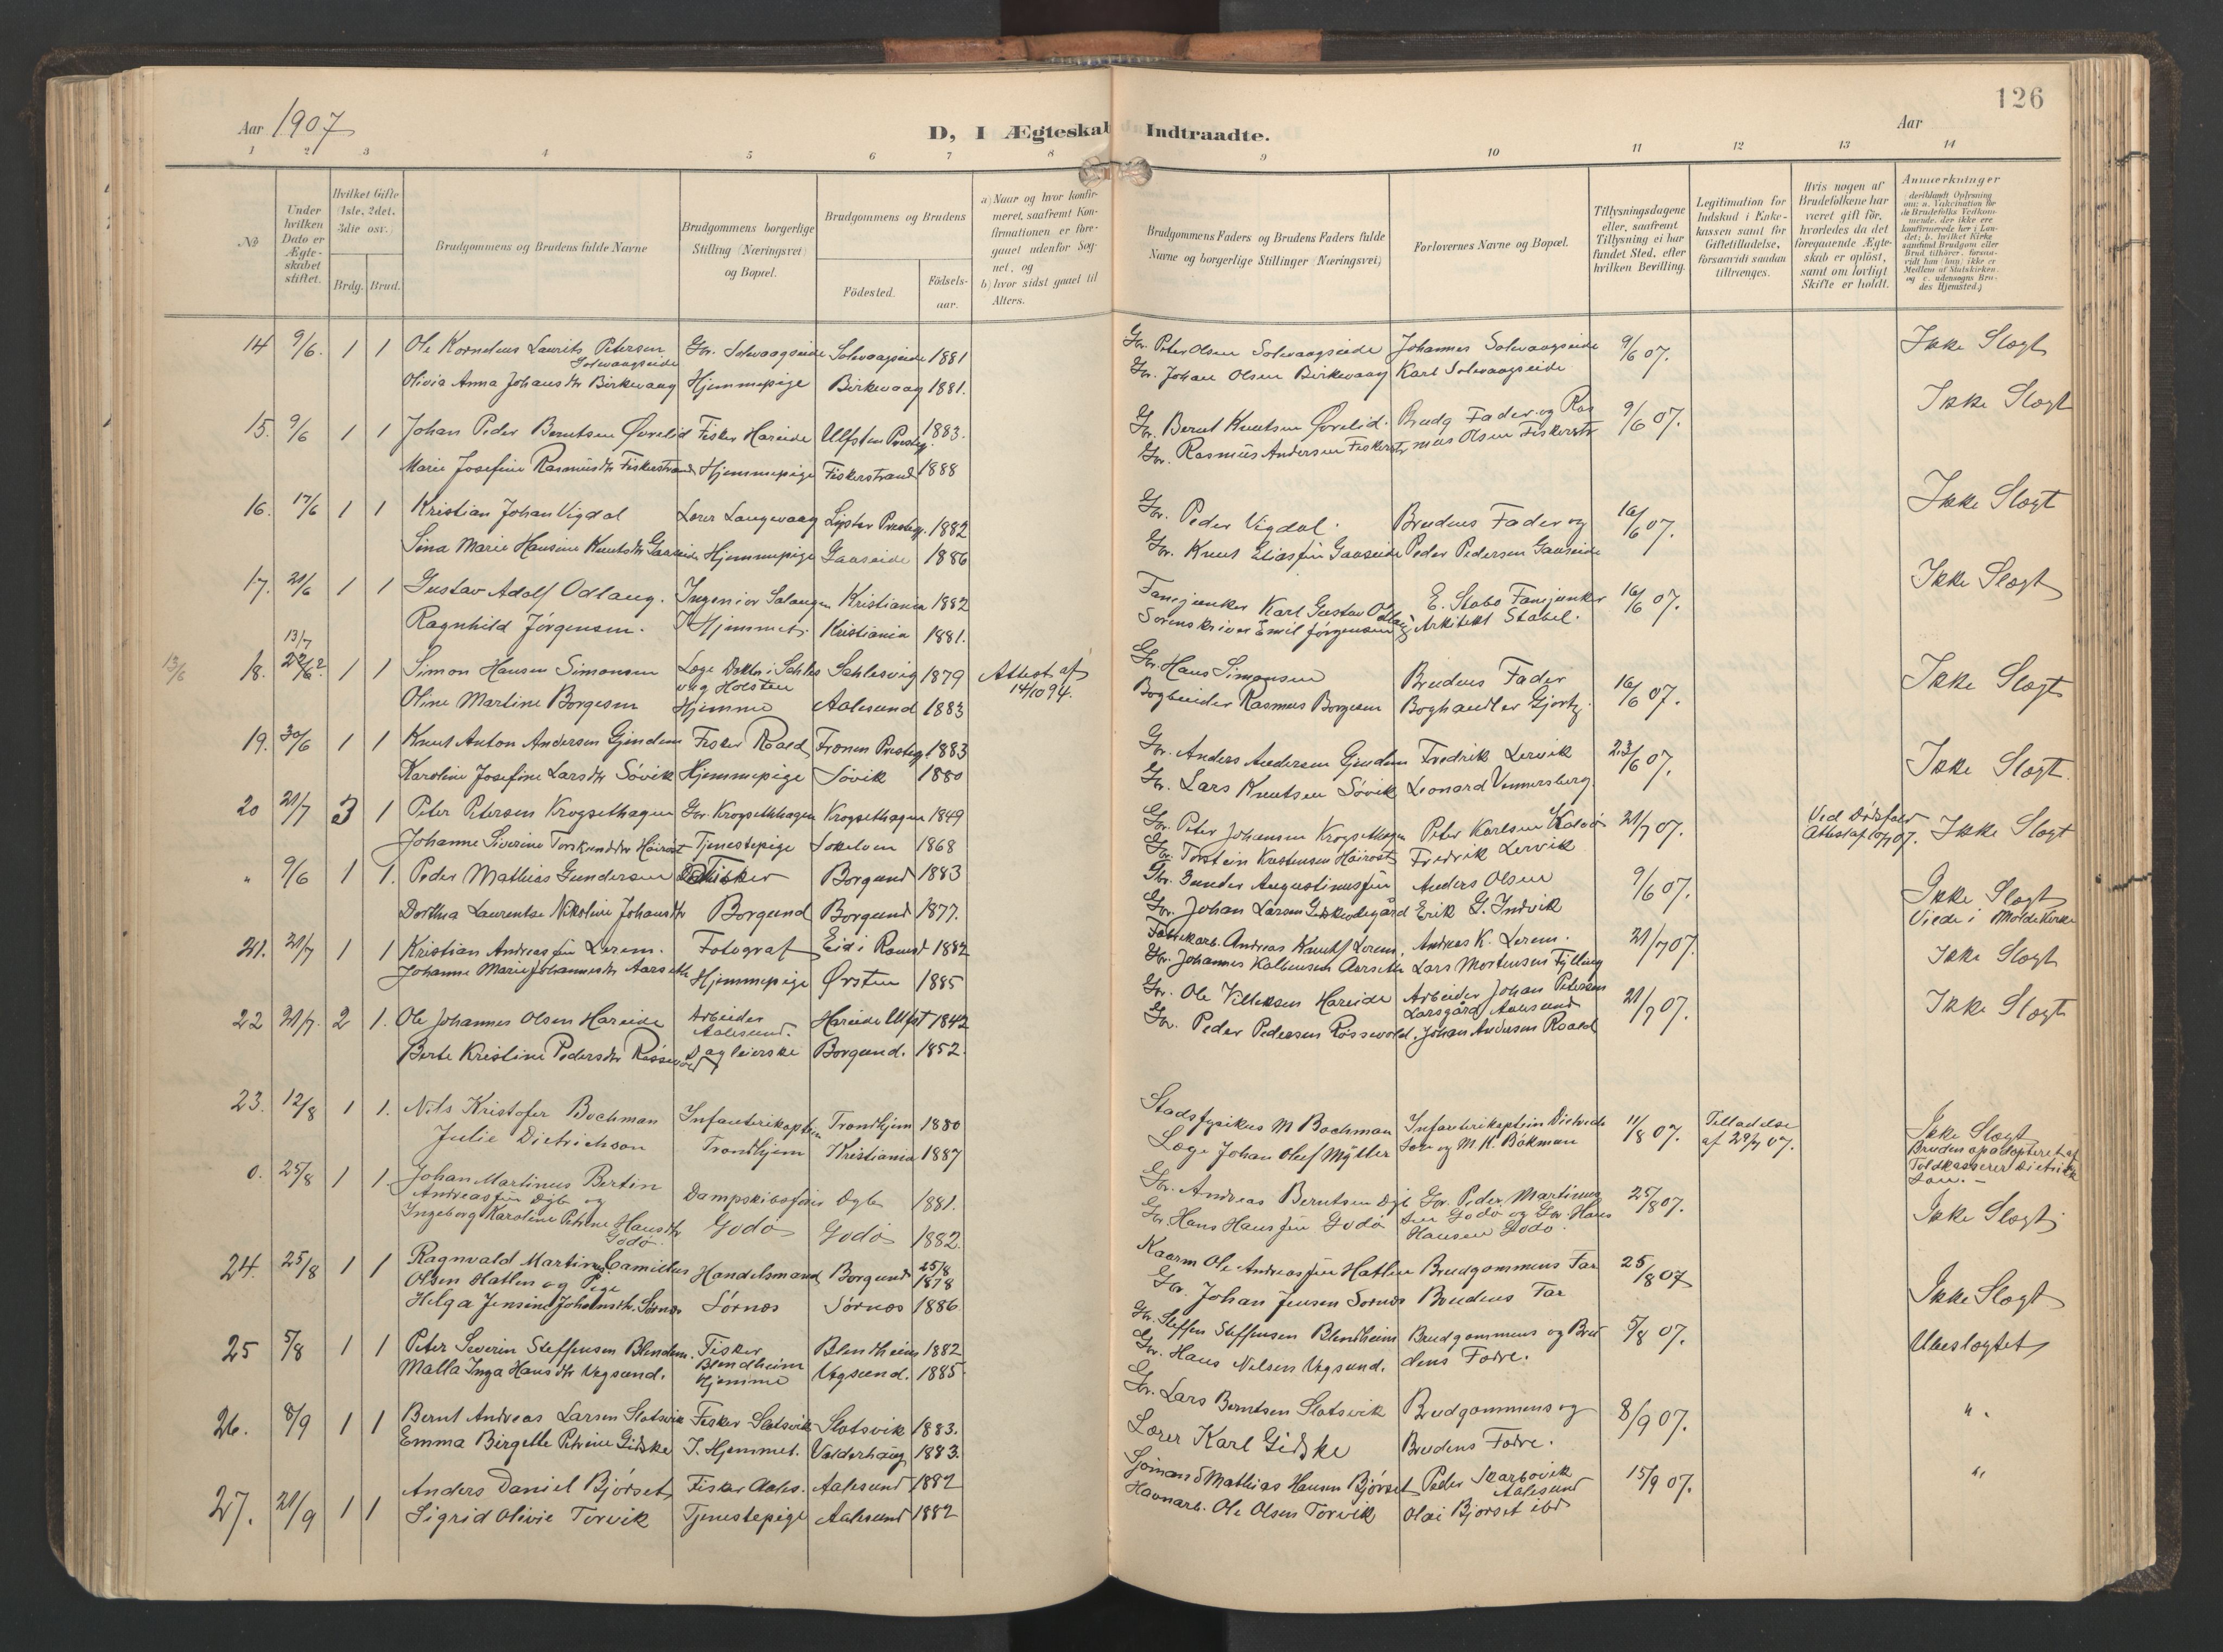 126
Aar 1907
D, I Ægteskab Indtraadte.
Aar
1 2 3 4 5 6 7 8 9 10 11 12 13 14
No
Under hvilken Dato er Ægteskabet stiftet.
Hvilket Gifte (1ste, 2det, 3die osv.)
Brdg. Brud.
Brudgommens og Brudens fulde Navne
Brudgommens borgerlige Stilling (Næringsvei) og Bopæl.
Brudgommens og Brudens
Födested.
Födselsaar.
a) Naar og hvor konfirmeret, saafremt Konfirmationen er foregaaet udenfor Sognet, og
b) hvor sidst gaaet til Alters.
Brudgommens Faders og Brudens Faders fulde Navne og borgerlige Stillinger (Næringsvei)
Forlovernes Navne og Bopæl.
Tillysningsdagene eller, saafremt Tillysning ei har fundet Sted, efter hvilken Bevilling.
Legitimation for Indskud i Enkekassen samt for Giftetilladelse, forsaavidt saadan tiltrænges.
Hvis nogen af Brudefolkene har været gift för, hvorledes da det foregaaende Ægteskab er oplöst, samt om lovligt Skifte er holdt.
Anmærkninger
14 9/6. 1 1 Ole Kornelius Laurits Petersen Solevaagseide Gbr. Solevaagseide Solevaagseide 1881 Gbr. Peter Olsen Solevaagseide Johannes Solevaagseide 9/6 07. Ikke Slægt
Olivia Anna Johansdtr Birkevaag Hjemmepige Birkevaag 1881. Gbr. Johan Olsen Birkevaag Karl Solevaagseide
15. 9/6 1 1 Johan Peder Berntsen Øvrelid Fisker Hareide Ulfsten Prestegj. 1883. Gbr. Bernt Knutsen Øvrelid. Brudg Fader og Ras 9/6 07. Ikke Slægt
Marie Josefine Rasmusdtr Fiskerstrand Hjemmepige Fiskerstrand 1888 Gbr. Rasmus Andersen Fiskerstr mus Olsen Fiskerstr
16. 17/6 1 1 Kristian Johan Vigdal Lærer Langevaag Lyster Prestegj. 1882 Gbr. Peder Vigdal. Brudens Fader og 16/6 07. Ikke Slægt
Sina Marie Hansine Knutsdtr Gaaseide Hjemmepige Gaaseide 1886 Gbr. Knut Eliasen Gaaseide Peder Pedersen Gaaseide
17. 21/6 1 1 Gustav Adolf Odlaug. Ingeniør Salangen Kristiania 1882 Fanejunker Karl Gustav Odlaug E. Stabo Fanejunker 16/6 07. Ikke Slægt
Ragnhild Jørgensen. I Hjemmet. Kristiania 1881. Sorenskriver Emil Jørgensen Arkitekt Stabel.
13/7
13/6 18. 22/6? 1 1 Simon Hansen Simonsen Læge Doktor i Schles Schlesvig 1879 Attest af Gbr. Hans Simonsen Brudens Fader 16/6 07. Ikke Slægt
vig Holsten 14/10 94.
Oline Martine Borgesen Hjemme Aalesund 1883 Bogbinder Rasmus Borgesen Boghandler Gjørtz.
19. 30/6 1 1 Knut Anton Andersen Gjendem Fisker Roald Fronen Prestegj 1883 Gbr. Anders Andersen Gjendem Fredrik Lervik 23/6 07. Ikke Slægt.
Karoline Josefine Larsdtr Søvik Hjemmepige Søvik 1880 Gbr. Lars Knutsen Søvik Leonard Vennersberg
20 21/7 3 1 Peter Petersen Krogsethagen Gbr. Krogsethhagen Krogsethagen 1849 Gbr. Peter Johansen Krogsethagen Peter Karlsen Kalvø 21/7 07. Ved Dødsfald Attest af 10/7 07. Ikke Slægt
Johanne Siverine Torsteinsdtr Høirost Tjenestepige 1868 Gbr. Torstein Kristensen Høirost Fredrik Lervik
" 9/6 1 1. Peder Mathias Gundersen Fisker Borgund 1883 Gbr. Gunder Augustinusen Anders Olsen 9/6 07. Ikke Slægt
Dorthea Laurentse Nikoline Johansdtr Borgund Borgund 1877. Gbr. Johan Larsen Erik G. Indvik Viede i Molde Kirke
21. 21/7 1 1 Kristian Andreassen Lerem. Fotograf Eid i Romsd 1882 Fabrikarb. Andreas Knuts Lerem, Andreas K. Lerem. 21/7 07. Ikke Slægt
Johanne Marie Johannesdtr Aarseth Hjemmepige Ørsten 1885 Gbr. Johannes Aarseth Lars Mortensen Tylling
22 21/7. 2 1. Ole Johannes Olsen Hareide Arbeider Aalesund. Hareide Ulfst 1842 Gbr. Ole Villeksen Hareide Arbeider Johan Petersen Larsgård Aalesund 21/7 07. Ikke Slægt
Berte Kristine Pedersdtr Røssevold Dagleierske Borgund. 1852. Gbr. Peder Pedersen Røssevold. Johan Andersen Roald
23. 12/8 1 1. Nils Kristofer Bachman Infanterikaptein Trondhjem 1880 Stadsfysikus M Bachman Infanterikaptein Dietrich 11/8 07. Tilladelse af 29/7 07. Ikke Slægt
Julie Dietrichson Trondhjem Kristiania 1887 Læge Johan Oluf Müller son og M K. Bakman Bruden opadopteret af
Toldkasserer Dietrich
son. –
0. 25/8 1 1. Johan Martinus Bertin Andreassen Ogle og Dampskibsfører Ogle 1881. Gbr. Andreas Berntsen Gbr. Peder Martinus 25/8 07. Ikke Slægt
Ingeborg Karoline Petrine Hansdtr Godø. Godø Godø 1882. Gbr. Hans Hansen Godø sen Godø og Gbr. Hans Hansen Godø.
24. 25/8 1 1 Ragnvald Martinus Camillus Olsen Hatlen og Pige Handelsmand Borgund 25/8 1878 Kaarm Ole Andreassen Hatlen Brudgommens Far 25/8 07 Ikke Slægt
Helga Jensine Johansdtr. Sørnes Sørnes Sørnes 1886 Gbr. Johan Jensen Sørnes Brudens Far
25 5/8 1 1 Peter Severin Steffensen Blendem. Fisker Blendheim Blendheim 1882 Gbr. Steffen Steffensen Blendheim Brudgommens og Bru 5/8 07. Ubeslægtet
Malla Inga Hansdtr Vegsund. Hjemme Vegsund. 1885. Gbr. Hans Nilsen Vegsund. dens Fædre.
26. 8/9 1 1 Bernt Andreas Larsen Slotsvik Fisker Slotsvik Slotsvik 1883. Gbr. Lars Berntsen Slotsvik Brudgommens og 8/9 07. ".
Emma Birgette Petrine Gidske I. Hjemmet. Valderhaug 1883. Lærer Karl Gidske Brudens Fædre.
27. 21/9 1 1 Anders Daniel Bjørset Fisker Aales. Aalesund 1882 Sjømand Mathias Hansen Bjørset Peder Skarbøvik Aalesund 15/9 07. "
Sigrid Olivie Torvik Tjenestepige Aalesund 1882 Havnarb. Ole Olsen Torvik Olai Bjørset ibd